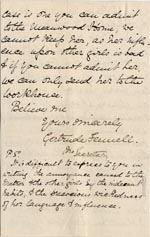 case is one you can admit
to the Meanwood Home, we
cannot keep her, as her influ-
ence upon other girls is bad
& if you cannot admit her
we can only send her to the
workhouse.
Believe me
Yours sincerely
Gertrude
Secretary.
PS.
I did not like to express to you in
writing the annoyance caused to the
matron & the other girls by the indecent
habits, & the wickedness
of her language & influence.